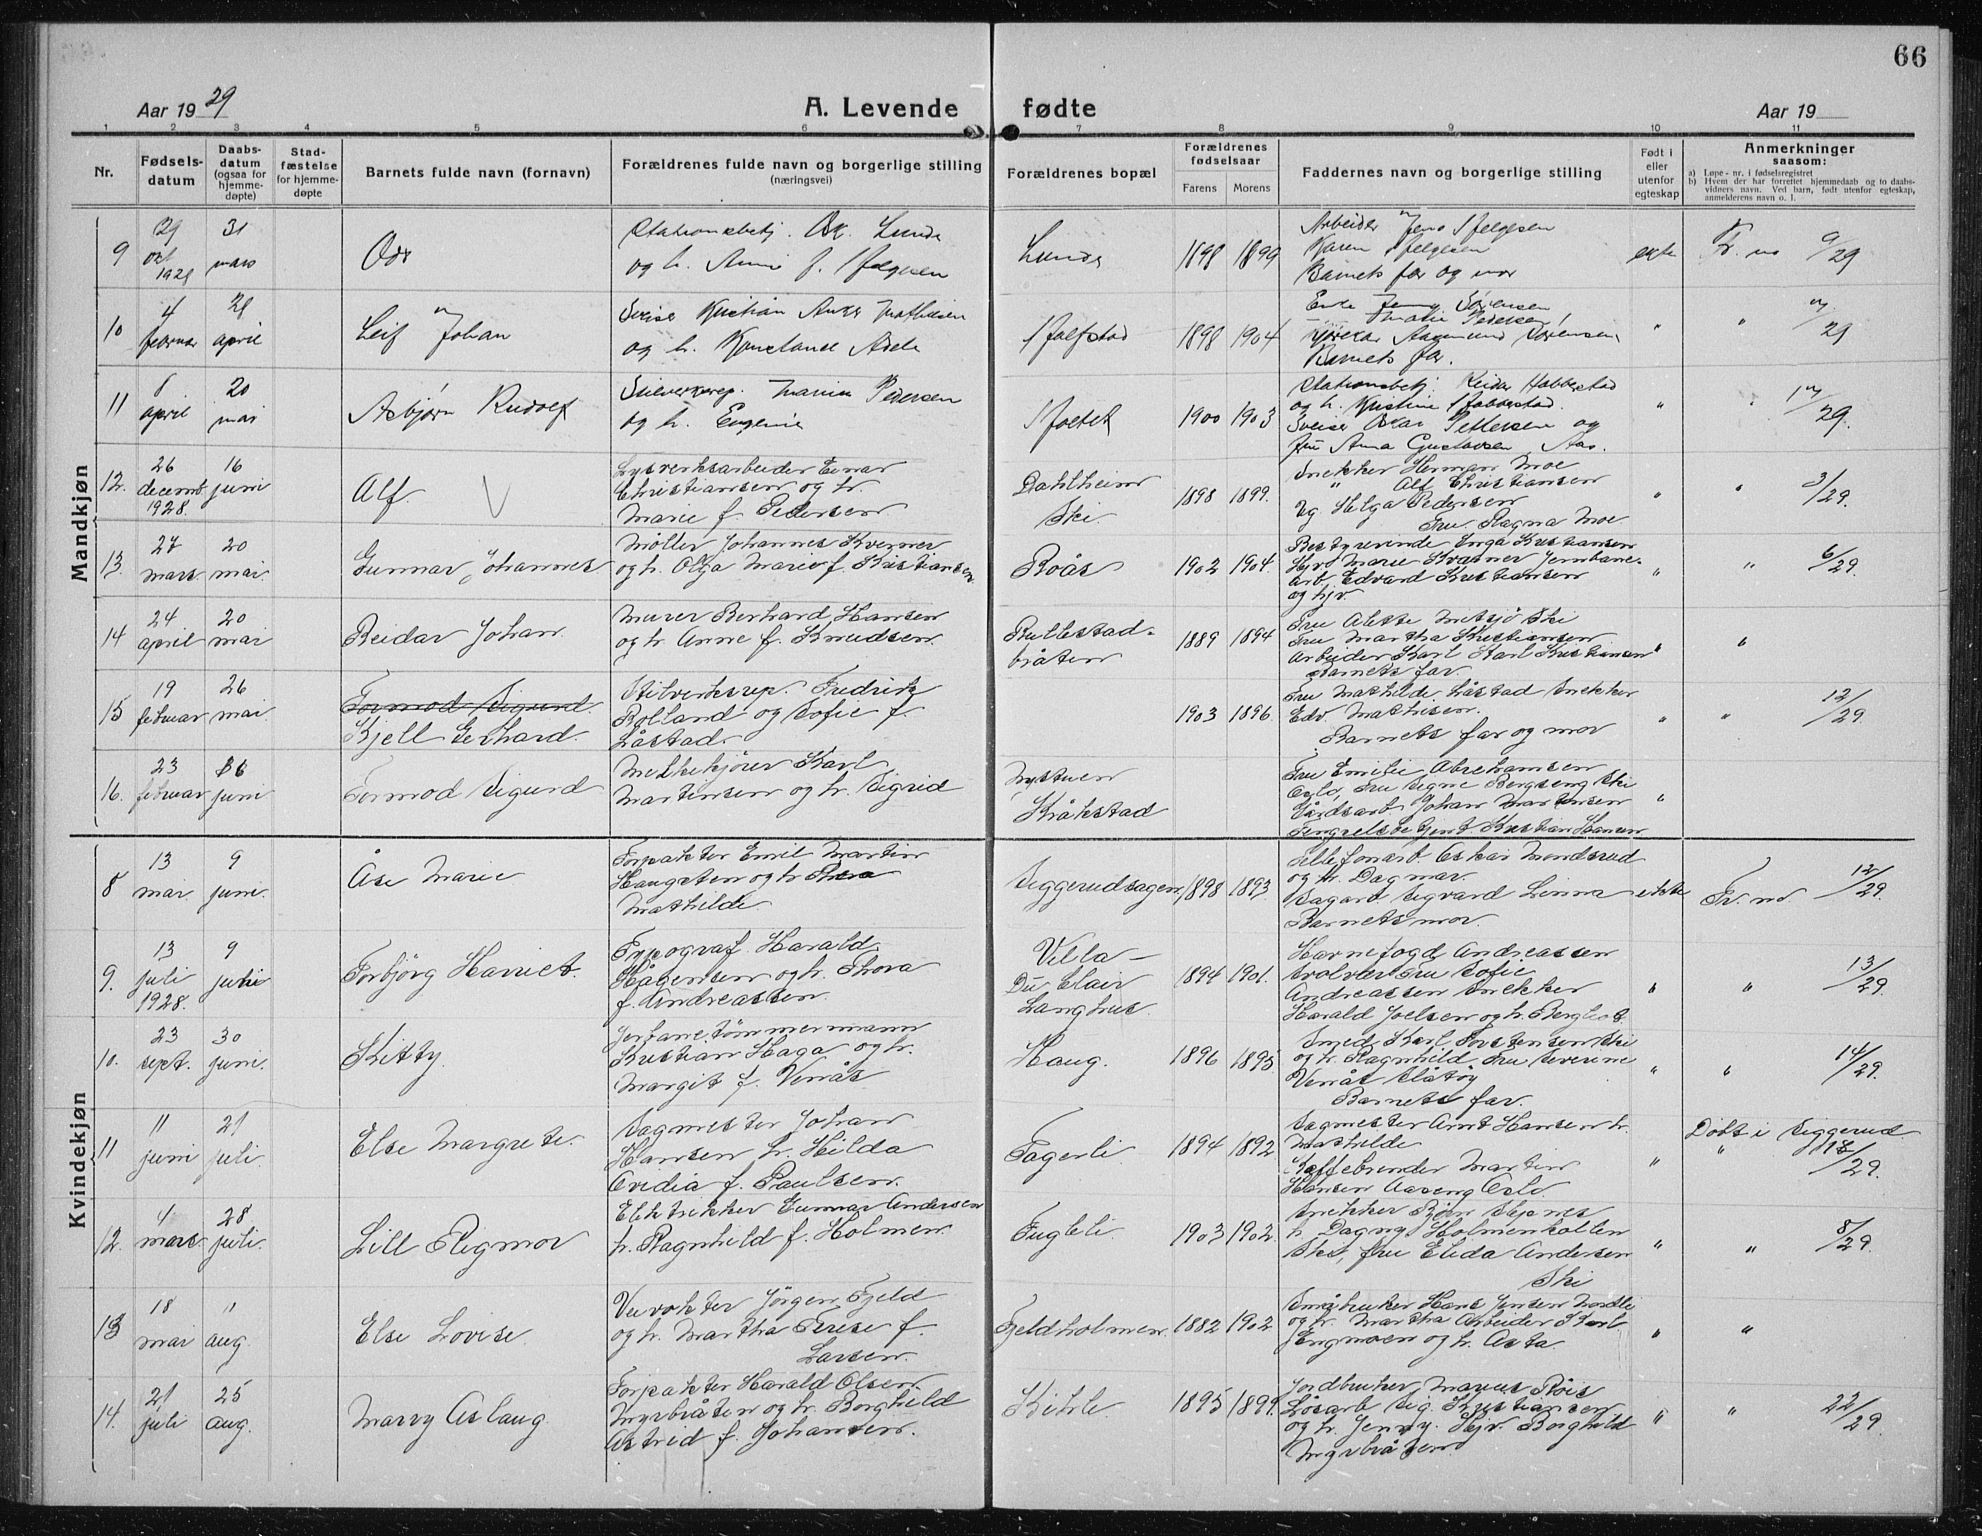 66
Aar 1929
A. Levende fødte
Aar 19
1 2 3 4 5 6 7 8 9 10 11
Nr.
Fødsels-
datum
Daabs-
datum
(ogsaa for
hjemme-
døpte)
Stad-
fæstelse
for hjemme-
døpte
Barnets fulde navn (fornavn)
Forældrenes fulde navn og borgerlige stilling
(næringsvei)
Forældrenes bopæl
Forældrenes
fødselsaar
Farens Morens
Faddernes navn og borgerlige stilling
Født i
eller
utenfor
egteskap
Anmerkninger
saasom:
a) Løpe-nr. i fødselsregistret
b) Hvem der har forrettet hjemmedaab og to daabs-
vidners navn. Ved barn, født utenfor egteskap,
anmelderens navn o. l.
Mandkjøn
9
29
1928
31
mars
Odd
og h.
Lunde
1898 1899
Arbeider Jens
Karen
Barnets far og mor
egte
Fr. no 9/29
10
4
februar
21
april
Leif Johan
Sveiser Kristian
og h. Konstance
1898 1904
Enke Jenny Sørensen
Barnets far.
"
"
/29
11
8
april
20
mai
Asbjørn Rudolf
Pedersen
og h. Eugenie
1900 1903
og h. Kristine
Sveiser Oskar Pettersen og
fru Anna Gustavsen Aas.
"
"
/29.
12.
26
decemb.
1928.
16
juni
Alf.
Lysverksarbeider Einar
Christiansen og h.
Marie f. Pedersen
Dahlheim
Ski.
1898 1899.
Snekker Herman Moe
" Alf Christiansen
Helga Pedersen
Fru Ragna Moe
"
"
3/29.
13.
27
mars.
20
mai.
Gunnar Johannes
Møller Johannes Kverner
og h. Olga Marie f. Kristiansen
Roås
1902 1904.
Bestyrerinde Inga Kristiansen
Marie Kverner Jernbane-
arb. Edvard Kristiansen
"
"
6/29.
14
24
april
20
mai
Reidar Johan
Murer Berhard Hansen
og h. Anne f. Knudsen.
Rullestad-
bråten
1889 1894
Fru Martha Kristiansen
Arbeider Karl Kristiansen
Barnets far.
"
"
15
19
februar
26
mai
Tormod Sigurd.
Kjell Gerhard.
Fredrik
Rolland og Sofie f.
Låstad.
1903 1896.
Fru Mathilde Låstad Snekker
Edv. Mathisen.
Barnets far og mor
"
"
12/29.
16.
23
februar
juni
Tormod Sigurd
Melkekjører Karl
Martinsen og h. Sigrid
Nystuen
Kråkstad
Fru Emilie Abrahamsen
Oslo, Fru Signe Bergseng Ski
Gårdsarb. Johan Martinsen
Fengselsbetjent Kristian Hansen
"
Kvindekjøn
8
13
mai
9
juni.
Åse Marie
Forpakter Emil Martin
Haugsten og h. Thea
Mathilde
Siggerudsagen
1898 1893.
Telefonarb. Oskar Mondsrud
og h. Dagmar.
Sagarb Sigvard Linna
Barnets mor
ekte
Fr. no. 12/29.
9.
13
juli
1928.
9
juni
Torbjörg Harriet.
Typograf. Harald
Hågensen og h. Thora
f. Andreassen
Villa-
Du Clair
Langhus.
1894 1901.
Havnefogd Andreassen
Svolvær Fru Sofie
Andreassen Snekker
Harald Joelsen og h. Bergliot
"
"
13/29.
10.
23
sept.
30
juni.
Kitty.
Jerbane tömmermann
Kristian Haga og h.
Margit f. Venås
Haug.
1896 1895.
Smed Karl Torstensen Ski
og h. Ragnhild Fru Severine
Venås Slåtøy
Barnets far.
"
"
14/29.
11
11
juni
21
juli.
Else Margrete.
Sagmester Johan
Hansen h. Hilda
Ovidia f. Paulsen.
Fagerli.
1894 1892
Sagmester Arnt Hansen h.
Mathilde
Kaffebrender Martin
Hansen Aaseng Oslo.
"
Döbt i Siggerud
"
/29.
12.
4
mars.
28
juli.
Lill Rigmor
Elektriker Gunnar Andersen
h. Ragnhild f. Holmen.
Fugleli.
1903 1902.
h. Dagny Holmenkollen
Ski, fru Elida Andersen
Ski
"
"
8/29.
13
18
mai
11
aug.
Else Lovise.
Veivokter Jörgen Fjeld
og h. Martha Terese f.
Larsen.
Fjeldholmen.
1882 1902
Småbruker Hans Jensen Nordli
og h. Martha Arbeider Karl
Engmoen og h. Asta
"
"
14.
21
juli
25
aug.
Marry Aslaug.
Forpakter Harald Olsen
Myrbråten og h. Borghild
Astrid f. Johansen.
Kihrle
1895 1899.
Jordbruker Marius Röis
Lösarb Sig. Kristiansen
og h. Jenny. Hjv. Borghild
Myrbråten
"
"
22/29.